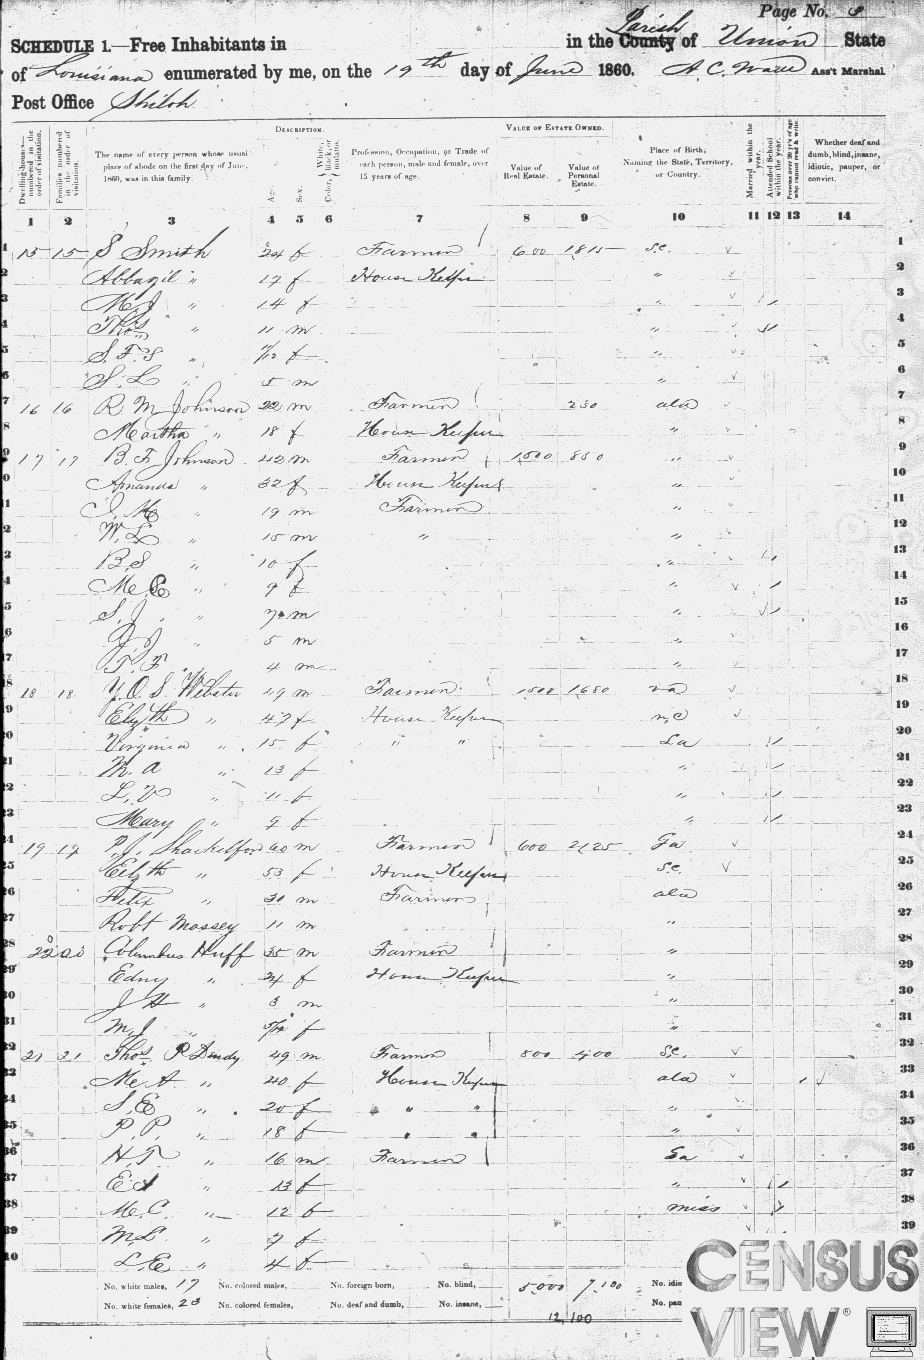 Page No. 3
SCHEDULE 1.—Free Inhabitants in in the County Parish of Union State
of Louisiana enumerated by me, on the 19th day of June 1860. A. C. Wade Ass't Marshal
Post Office Shiloh
DESCRIPTION. VALUE OF ESTATE OWNED.
Dwelling-houses—numbered in the order of visitation. Families numbered in the order of visitation. The name of every person whose usual place of abode on the first day of June, 1860, was in this family. Age. Sex. Color, White, black, or mulatto. Profession, Occupation, or Trade of each person, male and female, over 15 years of age. Value of Real Estate. Value of Personal Estate. Place of Birth, Naming the State, Territory, or Country. Married within the year. Attended School within the year. Persons over 20 y'rs of age who cannot read & write. Whether deaf and dumb, blind, insane, idiotic, pauper, or convict.
1 2 3 4 5 6 7 8 9 10 11 12 13 14
1 15 15 S Smith 24 f Farmer 600 1815 S.C. 1
2 Abbagil " 17 f House Keeper " 2
3 M. J " 14 f " 3
4 Thos " 11 m " 4
5 S. F. S " f " 5
6 S. L " 5 m " 6
7 16 16 R M Johnson 22 m Farmer 230 ala 7
8 Martha " 18 f House Keeper " 8
9 17 17 B. F. Johnson 42 m Farmer 1500 850 " 9
10 Amanda " 32 f House Keeper " 10
11 " 19 m Farmer " 11
12 W. L " 15 m " " 12
13 B. S " 10 f " 13
14 M. E " 9 f " 14
15 S. J. " 7 m " 15
16 J. J " 5 m " 16
17 T. F. " 4 m " 17
18 18 18 Y. O. S. Webster 49 m Farmer 1500 1650 va 18
19 Elizth " 47 f House Keeper N,C 19
20 Virginia " 15 f " " La 20
21 M. A " 13 f " 21
22 L. V " 11 f " 22
23 Mary " 9 f " 23
24 19 19 P. J. Shackelford 60 m Farmer 600 2125 Ga 24
25 Elizth " 53 f House Keeper S.C. 25
26 Felix " 30 m Farmer ala 26
27 Robt Massey 11 m " 27
28 20 20 Columbus Huff 35 m Farmer " 28
29 Edny " 24 f House Keeper " 29
30 J H " 3 m " 30
31 M. J " f " 31
32 21 21 Thos P Dendy 49 m Farmer 800 400 S.C. 32
33 M. A " 40 f House Keeper ala 33
34 S. E " 20 f " " " 34
35 P. P. " 18 f " " " 35
36 H. T " 16 m Farmer Ga 36
37 E A " 13 f " 37
38 M. C. " 12 f miss 38
39 M L " 7 f 39
40 L. E " 4 f
No. white males, 17 No. colored males, No. foreign born, No. blind, 5,000 7,100 No. idio
No. white females, 23 No. colored females, No. deaf and dumb, No. insane, No. pau
12,100
CENSUS
VIEW®